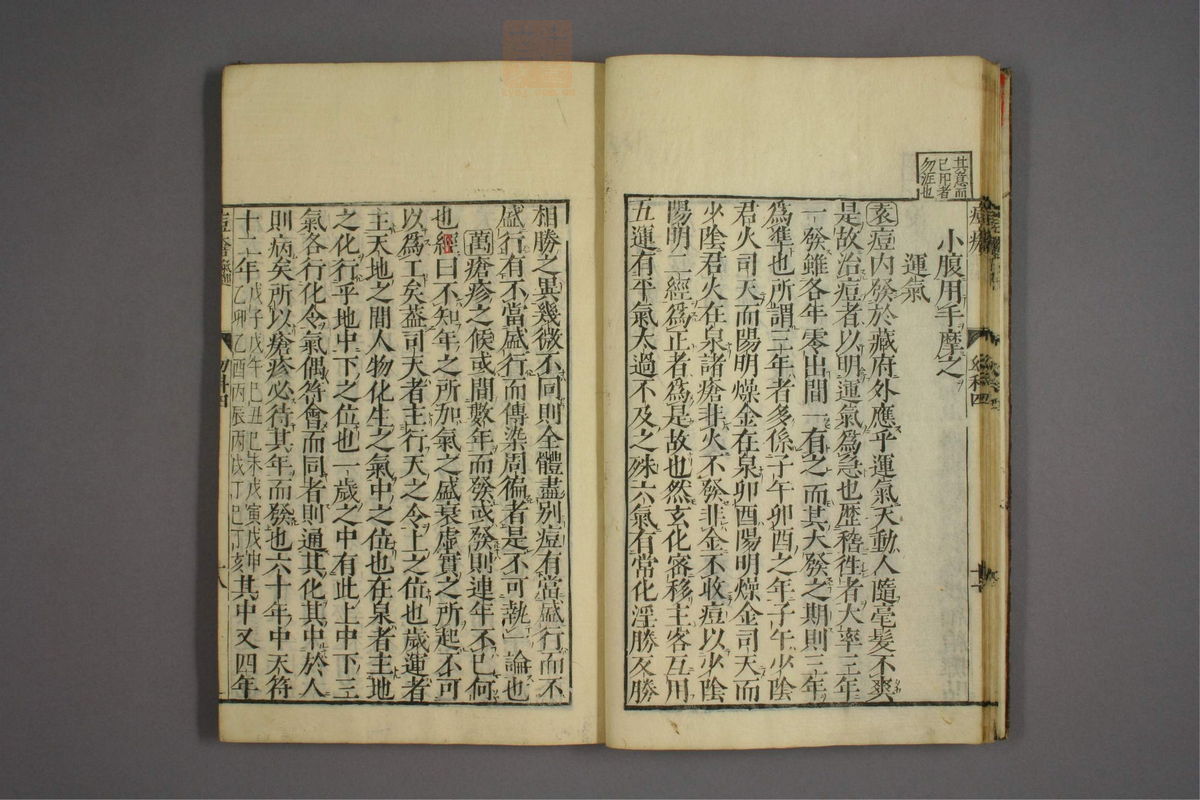 其意而
已卬者
勿泥也
小腹用手摩之
運氣
袁痘内發於藏府外應乎運氣天動人隨毫髮不爽
是故治痘者以明運氣爲急也歷稽徃者大率三年
一發雖各年零出間一有之而其大發之期則三年
爲準也所謂三年者多係子午卯酉之年子午少陰
君火司天而陽明燥金在泉卯酉陽明燥金司天而
少陰君火在泉諸瘡非火不發非金不收痘以少陰
陽明二經爲正者爲是故也然玄化密移主客互用
五運有平氣太過不及之殊六氣有常化淫勝反勝
相勝之異幾微不同則全體盡別痘有當盛行而不
盛行有不當盛行而傳染周徧者是不可執一論也
萬瘡疹之候或間數年而發或發則連年不已何
也經曰不知年之所加氣之盛衰虛實之所起不可
以爲工矣蓋司天者主行天之令上之位也歲運者
主天地之間人物化生之氣中之位也在泉者主地
之化行乎地中下之位也一歲之中有此上中下三
氣各行化令氣偶符會而同者則通其化其中於人
則病矣所以瘡疹必待其年而發也六十年中天符
十二年戊子戊午己丑己未戊寅戊申乙卯乙酉丙辰丙戌丁巳丁亥其中又四年